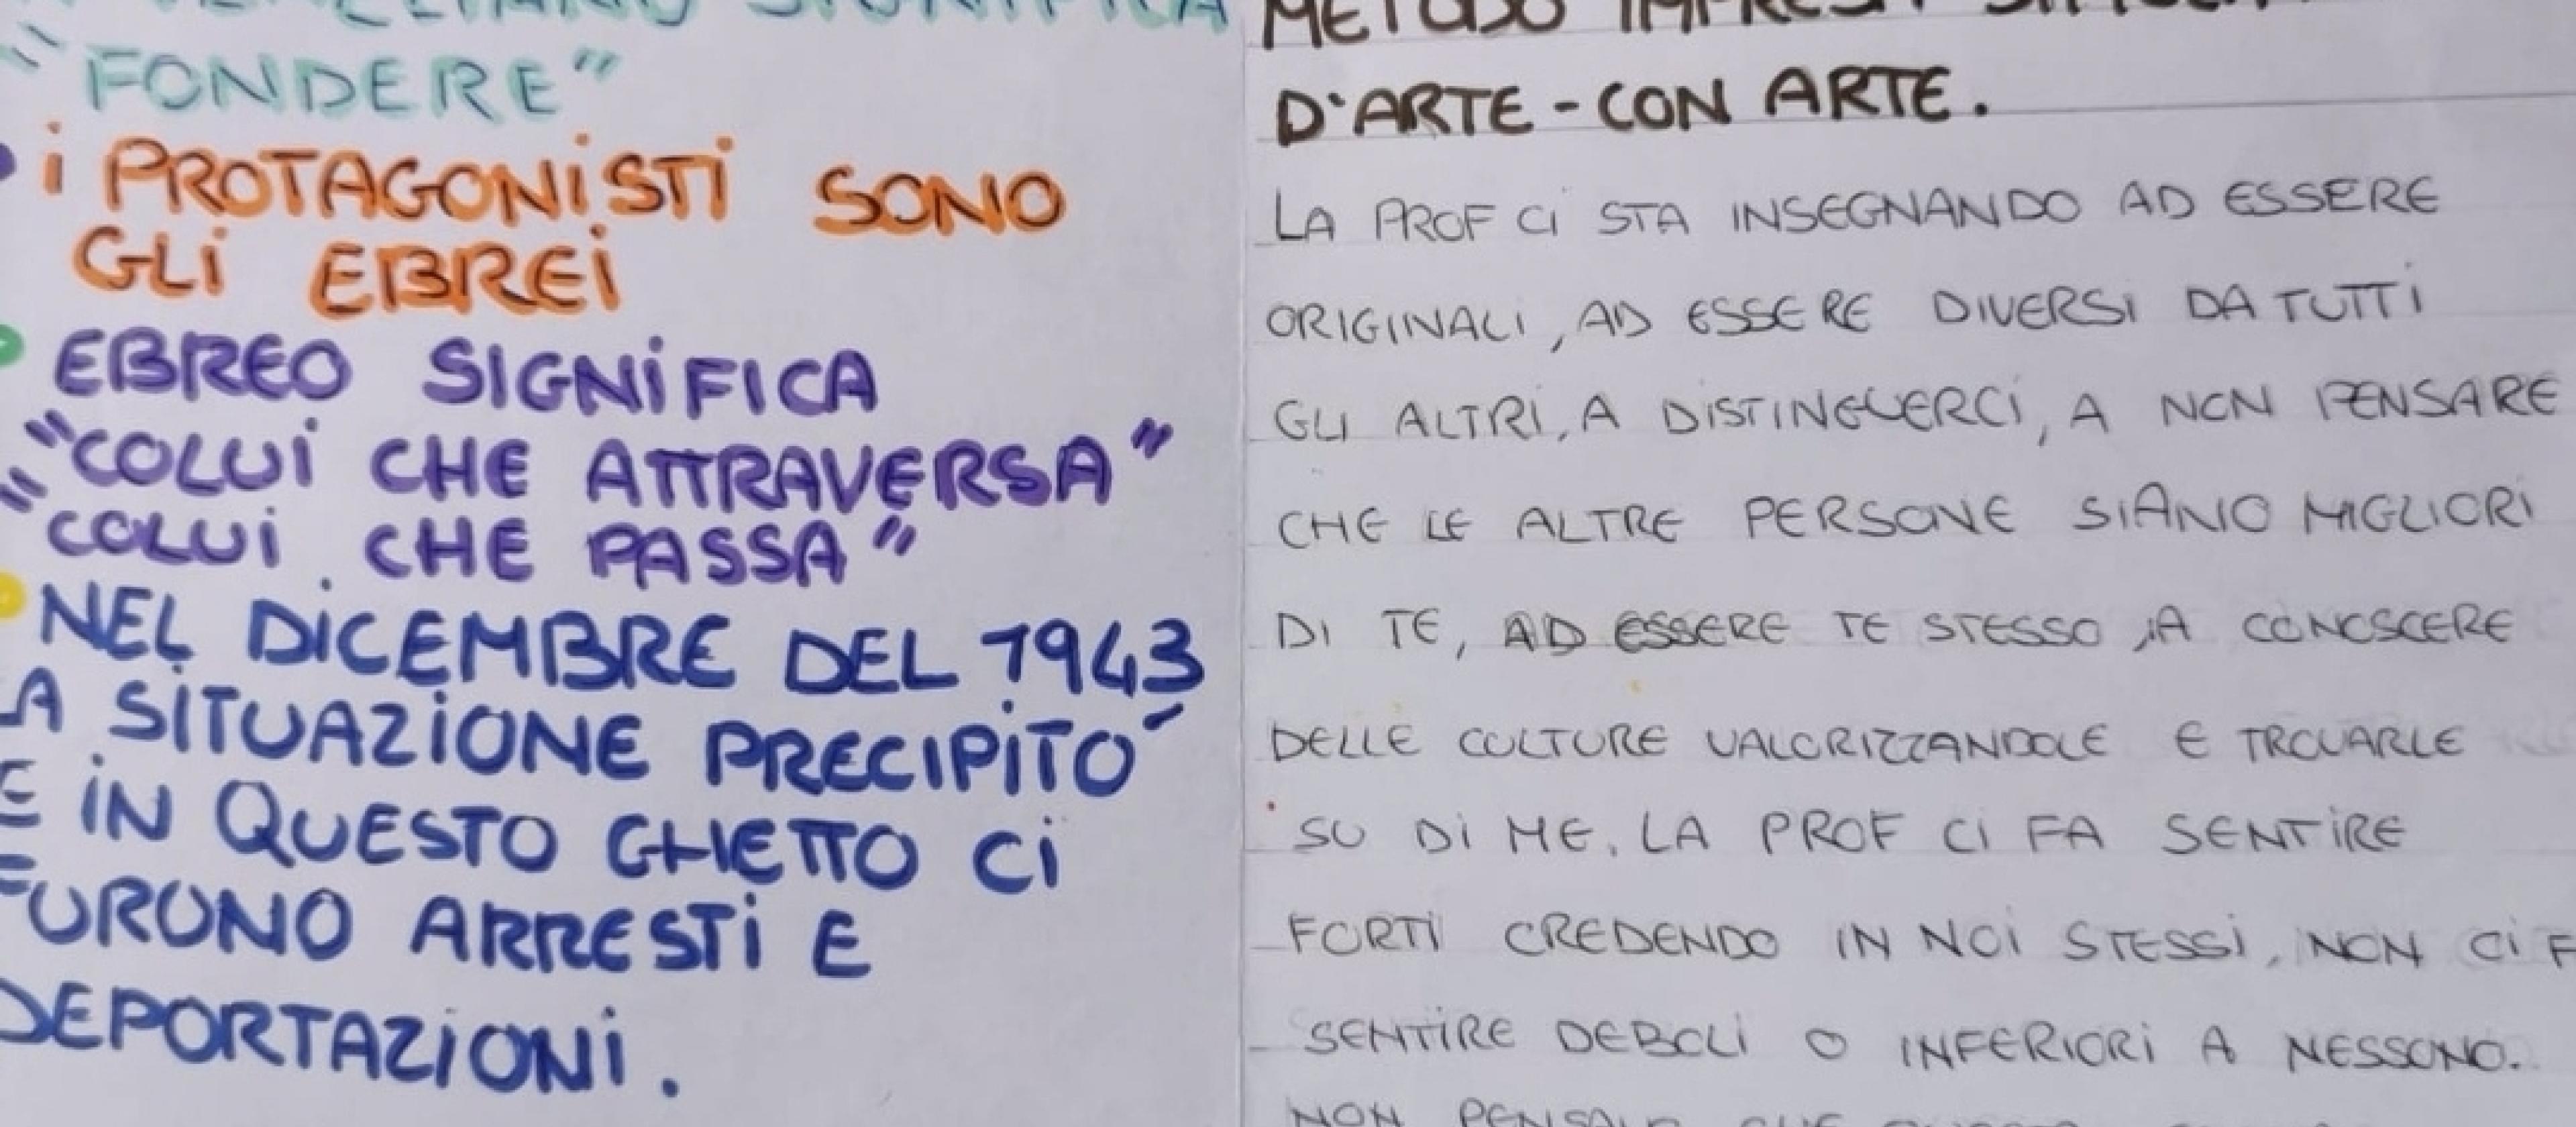 SIGNIFICA
"FONDERE"
i PROTAGONiSTi SONO
GLi EBREi
EBREO SIGNiFICA
"COLUi CHE ATTRAVERSA"
"COLUi CHE PASSA"
NEL DiCEMBRE DEL 1943
LA SiTUAZiONE PRECIPiTO'
E iN QUESTO GHETTO Ci
FURONO ARRESTi E
DEPORTAZiONi.
METODO
D'ARTE - CON ARTE.
LA PROF Ci STA INSEGNANDO AD ESSERE
ORIGINALI, AD ESSERE DIVERSI DA TUTTI
GLI ALTRI, A DISTINGUERCI, A NON PENSARE
CHE LE ALTRE PERSONE SIANO MIGLIORI
DI TE, AD ESSERE TE STESSO, A CONOSCERE
DELLE CULTURE VALORIZZANDOLE E TROVARLE
SU DI ME. LA PROF CI FA SENTIRE
FORTI CREDENDO IN NOI STESSI, NON CI F
SENTIRE DEBOLI O INFERIORI A NESSONO.
NON